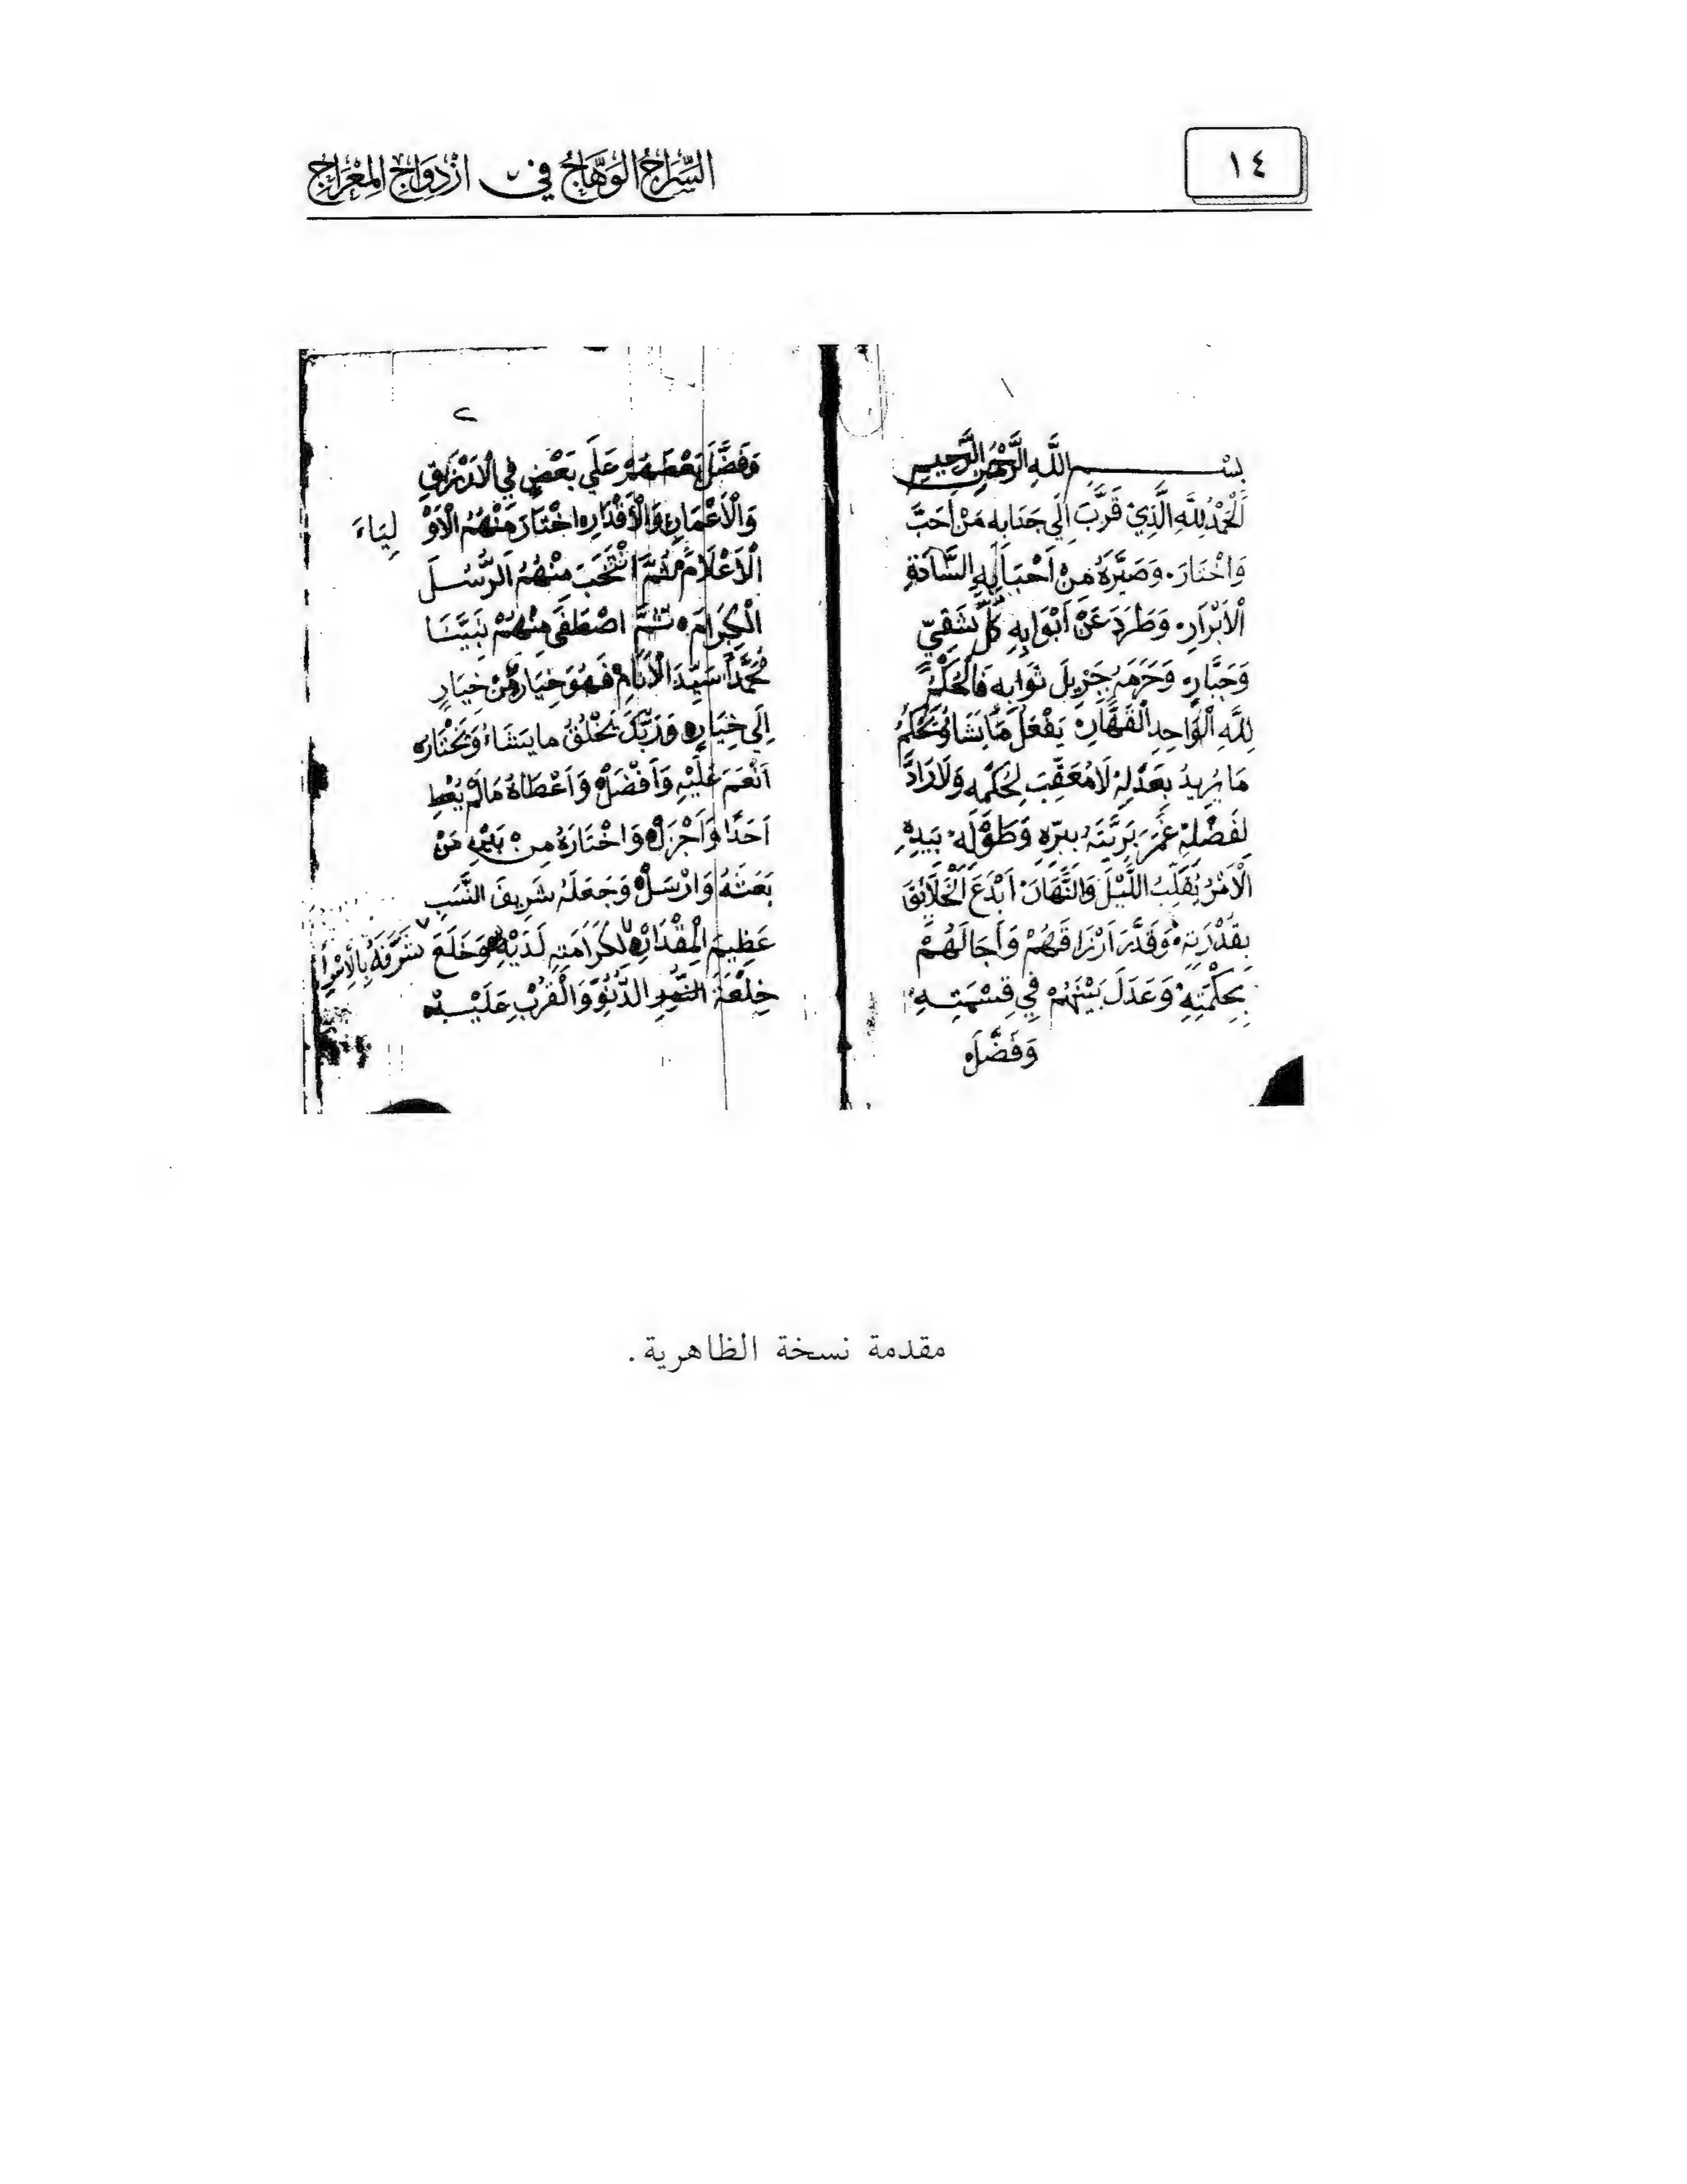 ١٤
السِّرَاجُ الوَهَّاجُ في ازْدِوَاجِ المِعْرَاجِ
١
بِسْمِ اللَّهِ الرَّحْمٰنِ الرَّحِيمِ
الْحَمْدُ لِلَّهِ الَّذِيْ قَرَّبَ اِلَي جَنَابِهِ مَنْ اَحَبَّ
وَاخْتَارَ، وَصَيَّرَهُ مِنْ اَحْبَابِهِ السَّادَةِ
الْاَبْرَارِ، وَطَرَدَ عَنْ اَبْوَابِهِ كُلَّ شَقِيٍّ
وَجَبَّارٍ، وَحَرَمَهُ جَزِيلَ ثَوَابِهِ فَالْحُكْمُ
لِلَّهِ الْوَاحِدِ الْقَهَّارِ، يَفْعَلُ مَا يَشَاءُ وَيَحْكُمُ
مَا يُرِيدُ بِعَدْلِهِ لَا مُعَقِّبَ لِحُكْمِهِ وَلَا رَادَّ
لِفَضْلِهِ غَمَرَ بَرِيَّتَهُ بِبِرِّهِ وَطَوْلِهِ، بِيَدِهِ
الْاَمْرُ يُقَلِّبُ اللَّيْلَ وَالنَّهَارَ، اَبْدَعَ الْخَلَائِقَ
بِقُدْرَتِهِ، وَقَدَّرَ اَرْزَاقَهُمْ وَاَجَالَهُمْ
بِحِكْمَتِهِ، وَعَدَلَ بَيْنَهُمْ فِي قِسْمَتِهِ،
وَفَضَّلَ
٢
وَفَضَّلَ بَعْضَهُمْ عَلَي بَعْضٍ فِي الْاَرْزَاقِ
وَالْاَعْمَارِ وَالْاَقْدَارِ، اخْتَارَ مِنْهُمُ الْاَوْ لِيَاءَ
الْاَعْلَامَ، ثُمَّ انْتَخَبَ مِنْهُمُ الرُّسُلَ
الْكِرَامَ، ثُمَّ اصْطَفَى مِنْهُمْ نَبِيَّنَا
مُحَمَّدًا سَيِّدَ الْاَنَامِ فَهُوَ خِيَارٌ مِنْ خِيَارٍ
اِلَي خِيَارٍ، وَرَبُّكَ يَخْلُقُ مَا يَشَاءُ وَيَخْتَارُ،
اَنْعَمَ عَلَيْهِ وَاَفْضَلَ، وَاَعْطَاهُ مَا لَمْ يُعْطِ
اَحَدًا وَاَجْزَلَ، وَاخْتَارَهُ مِنْ بَيْنِ مَنْ
بَعَثَهُ وَاَرْسَلَ، وَجَعَلَهُ شَرِيفَ النَّسَبِ
عَظِيمَ الْمِقْدَارِ، لِكَرَامَتِهِ لَدَيْهِ، وَخَلَعَ
خِلْعَةَ الدُّنُوِّ وَالْقُرْبِ عَلَيْهِ
مقدمة نسخة الظاهرية.